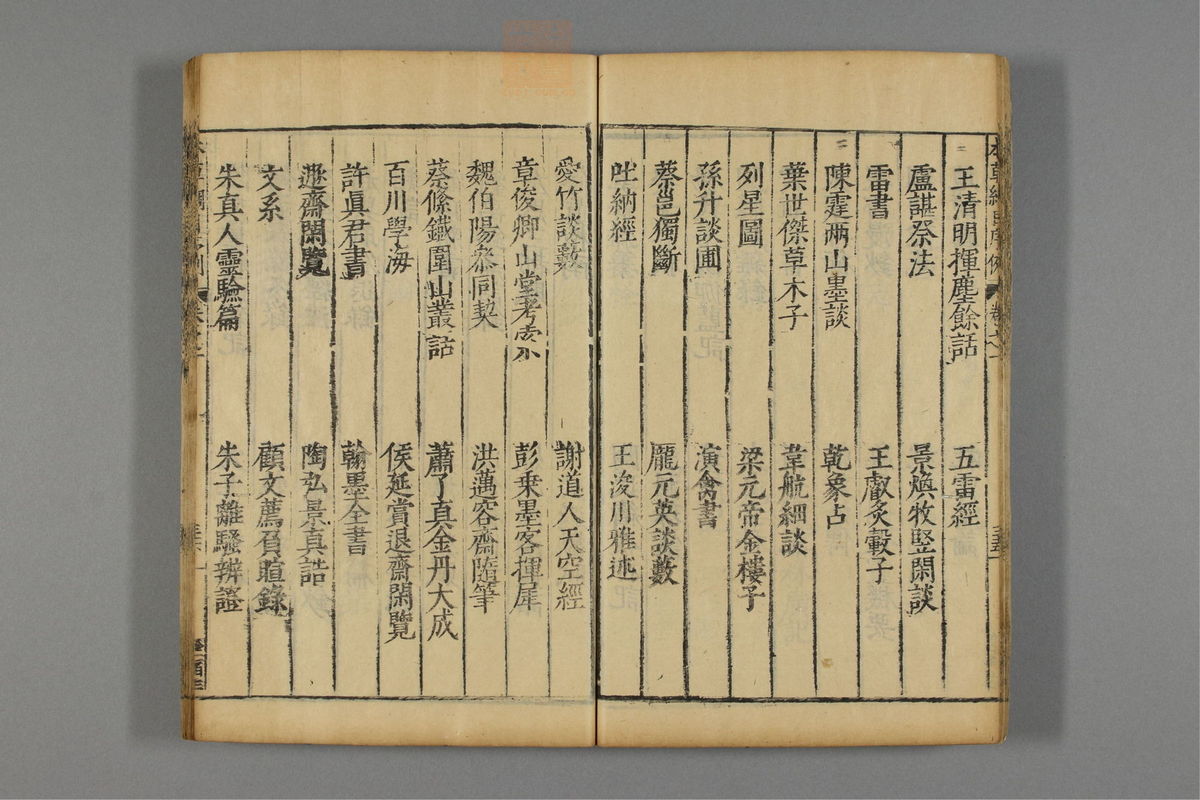 王清明揮塵餘話　五雷經
盧諶祭法　景煥牧竪閑談
雷書　王叡炙轂子
陳霆兩山墨談　乾象占
葉世傑草木子　韋航細談
列星圖　梁元帝金樓子
孫升談圃　演禽書
蔡邕獨斷　龐元英談藪
吐納經　王浚川雅述
愛竹談藪　謝道人天空經
章俊卿山堂考索　彭乗墨客揮犀
魏伯陽叅同契　洪邁容齋隨筆
蔡絛鐵圍山叢話　蕭了真金丹大成
百川學海　侯延賞退齋閑覽
許真君書　翰墨全書
遯齋閑覽　陶弘景真誥
文系　顧文薦負暄錄
朱真人靈驗篇　朱子離騷辨證